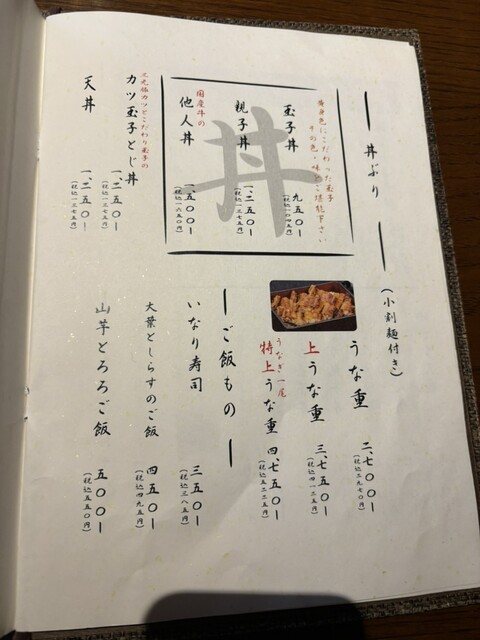 丼ぶり
(小割麺付き)
黄身色にこだわった玉子
その色・味をご堪能下さい
丼
玉子丼
九五〇
(税込一〇四五円)
親子丼
一、二五〇
(税込一三七五円)
国産牛の
他人丼
一、五〇〇
(税込一六五〇円)
三元豚カツとこだわり玉子の
カツ玉子とじ丼
一、二五〇
(税込一三七五円)
天丼
一、二五〇
(税込一三七五円)
うな重
二、七〇〇
(税込二九七〇円)
上うな重
三、七五〇
(税込四一二五円)
うなぎ一尾
特上うな重
四、七五〇
(税込五二二五円)
ご飯もの
いなり寿司
三五〇
(税込三八五円)
大葉としらすのご飯
四五〇
(税込四九五円)
山芋とろろご飯
五〇〇
(税込五五〇円)